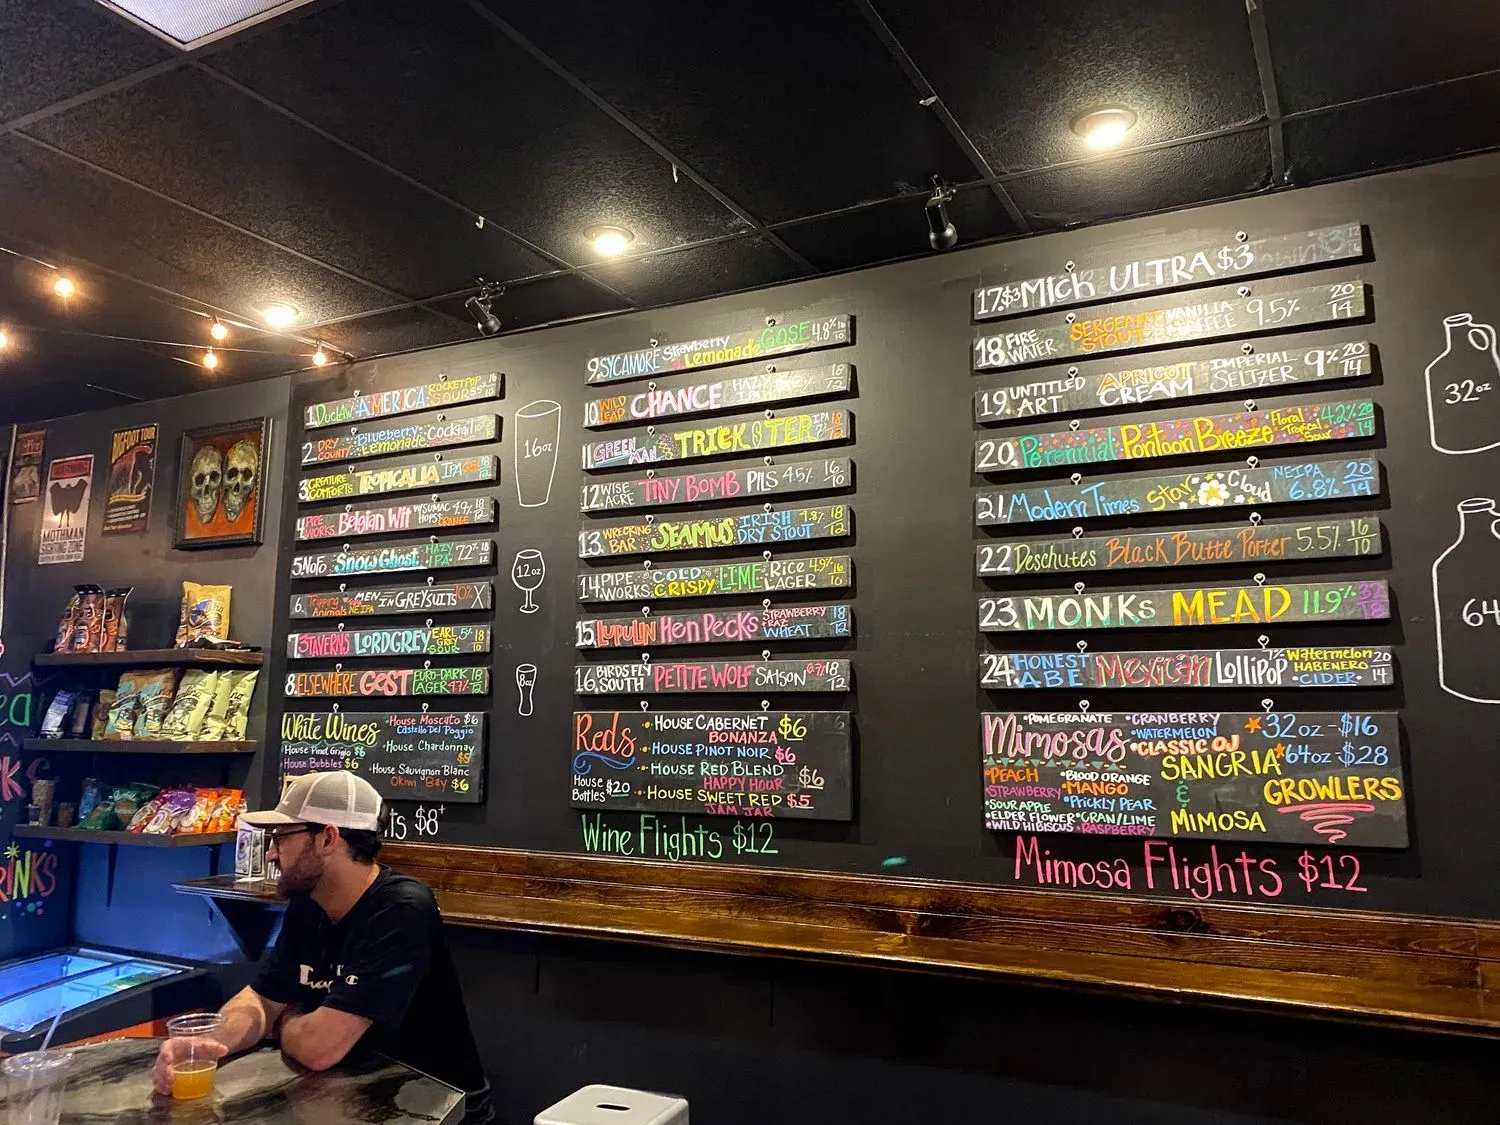 BIGFOOT TOUR
MOTHMAN
SIGHTING ZONE
1. DUCLAW AMERICA ROCKETPOP SOUR 5.5%
2. DRY COUNTY Blueberry Lemonade COCKTAIL
3. CREATURE COMFORTS TROPICALIA IPA 18/12
4. PIPE WORKS Belgian Wit W/SUMAC HOPS & ORANGE 4.9% 18/12
5. NoFo SNOW GHOST HAZY IPA 7.2% 18/12
6. Tripping Animals MEN IN GREY SUITS NEIPA 10% X
7. 3 TAVERNS LORD GREY EARL GREY SOUR 5% 18/10
8. ELSEWHERE GEST EURO-DARK LAGER 4.7% 18/12
WHITE WINES
House Pinot Grigio $6
House Bubbles $6
• House Moscato $6
Castello Del Poggio
• House Chardonnay
$5
• House Sauvignon Blanc
Okiwi Bay $6
ts $8+
16oz
12oz
8oz
9. SYCAMORE Strawberry Lemonade GOSE 4.8% 16/10
10. WILD LEAP CHANCE HAZY IPA 18/12
11. GREEN MAN TRICKSTER IPA
12. WISE ACRE TINY BOMB PILS 4.5% 16/10
13. WRECKING BAR SEAMUS IRISH DRY STOUT 4.3% 18/12
14. PIPE WORKS COLD & CRISPY LIME Rice LAGER 4.9% 16/10
15. LUPULIN Hen Pecks STRAWBERRY WHEAT 18/12
16. BIRDSFLY SOUTH PETITE WOLF SAISON 18/12
Reds
House Bottles $20
• HOUSE CABERNET $6
BONANZA
• HOUSE PINOT NOIR $6
• HOUSE RED BLEND $6
HAPPY HOUR
• HOUSE SWEET RED $5
JAM JAR
Wine Flights $12
17. $3 Mich ULTRA $3
18. FIRE WATER SERGEANT STOUT VANILLA COFFEE 9.5% 20/14
19. UNTITLED ART APRICOT CREAM IMPERIAL SELTZER 9% 20/14
20. Perennial Pontoon Breeze Floral Tropical Sour 4.2% 20/14
21. Modern Times Star Cloud NEIPA 6.8% 20/14
22 Deschutes Black Butte Porter 5.5% 16/10
23. MONKS MEAD 11.9% 32/18
24. HONEST ABE MEXICAN LOLLIPOP 7% Watermelon HABENERO • CIDER • 20/14
Mimosas
• POMEGRANATE
• CRANBERRY
• WATERMELON
• CLASSIC OJ
• PEACH
• STRAWBERRY
• SOUR APPLE
• ELDER FLOWER
• WILD HIBISCUS
• BLOOD ORANGE
• MANGO
• PRICKLY PEAR
• CRAN/LIME
• RASPBERRY
32oz - $16
64oz - $28
SANGRIA
&
MIMOSA
GROWLERS
Mimosa Flights $12
32oz
64